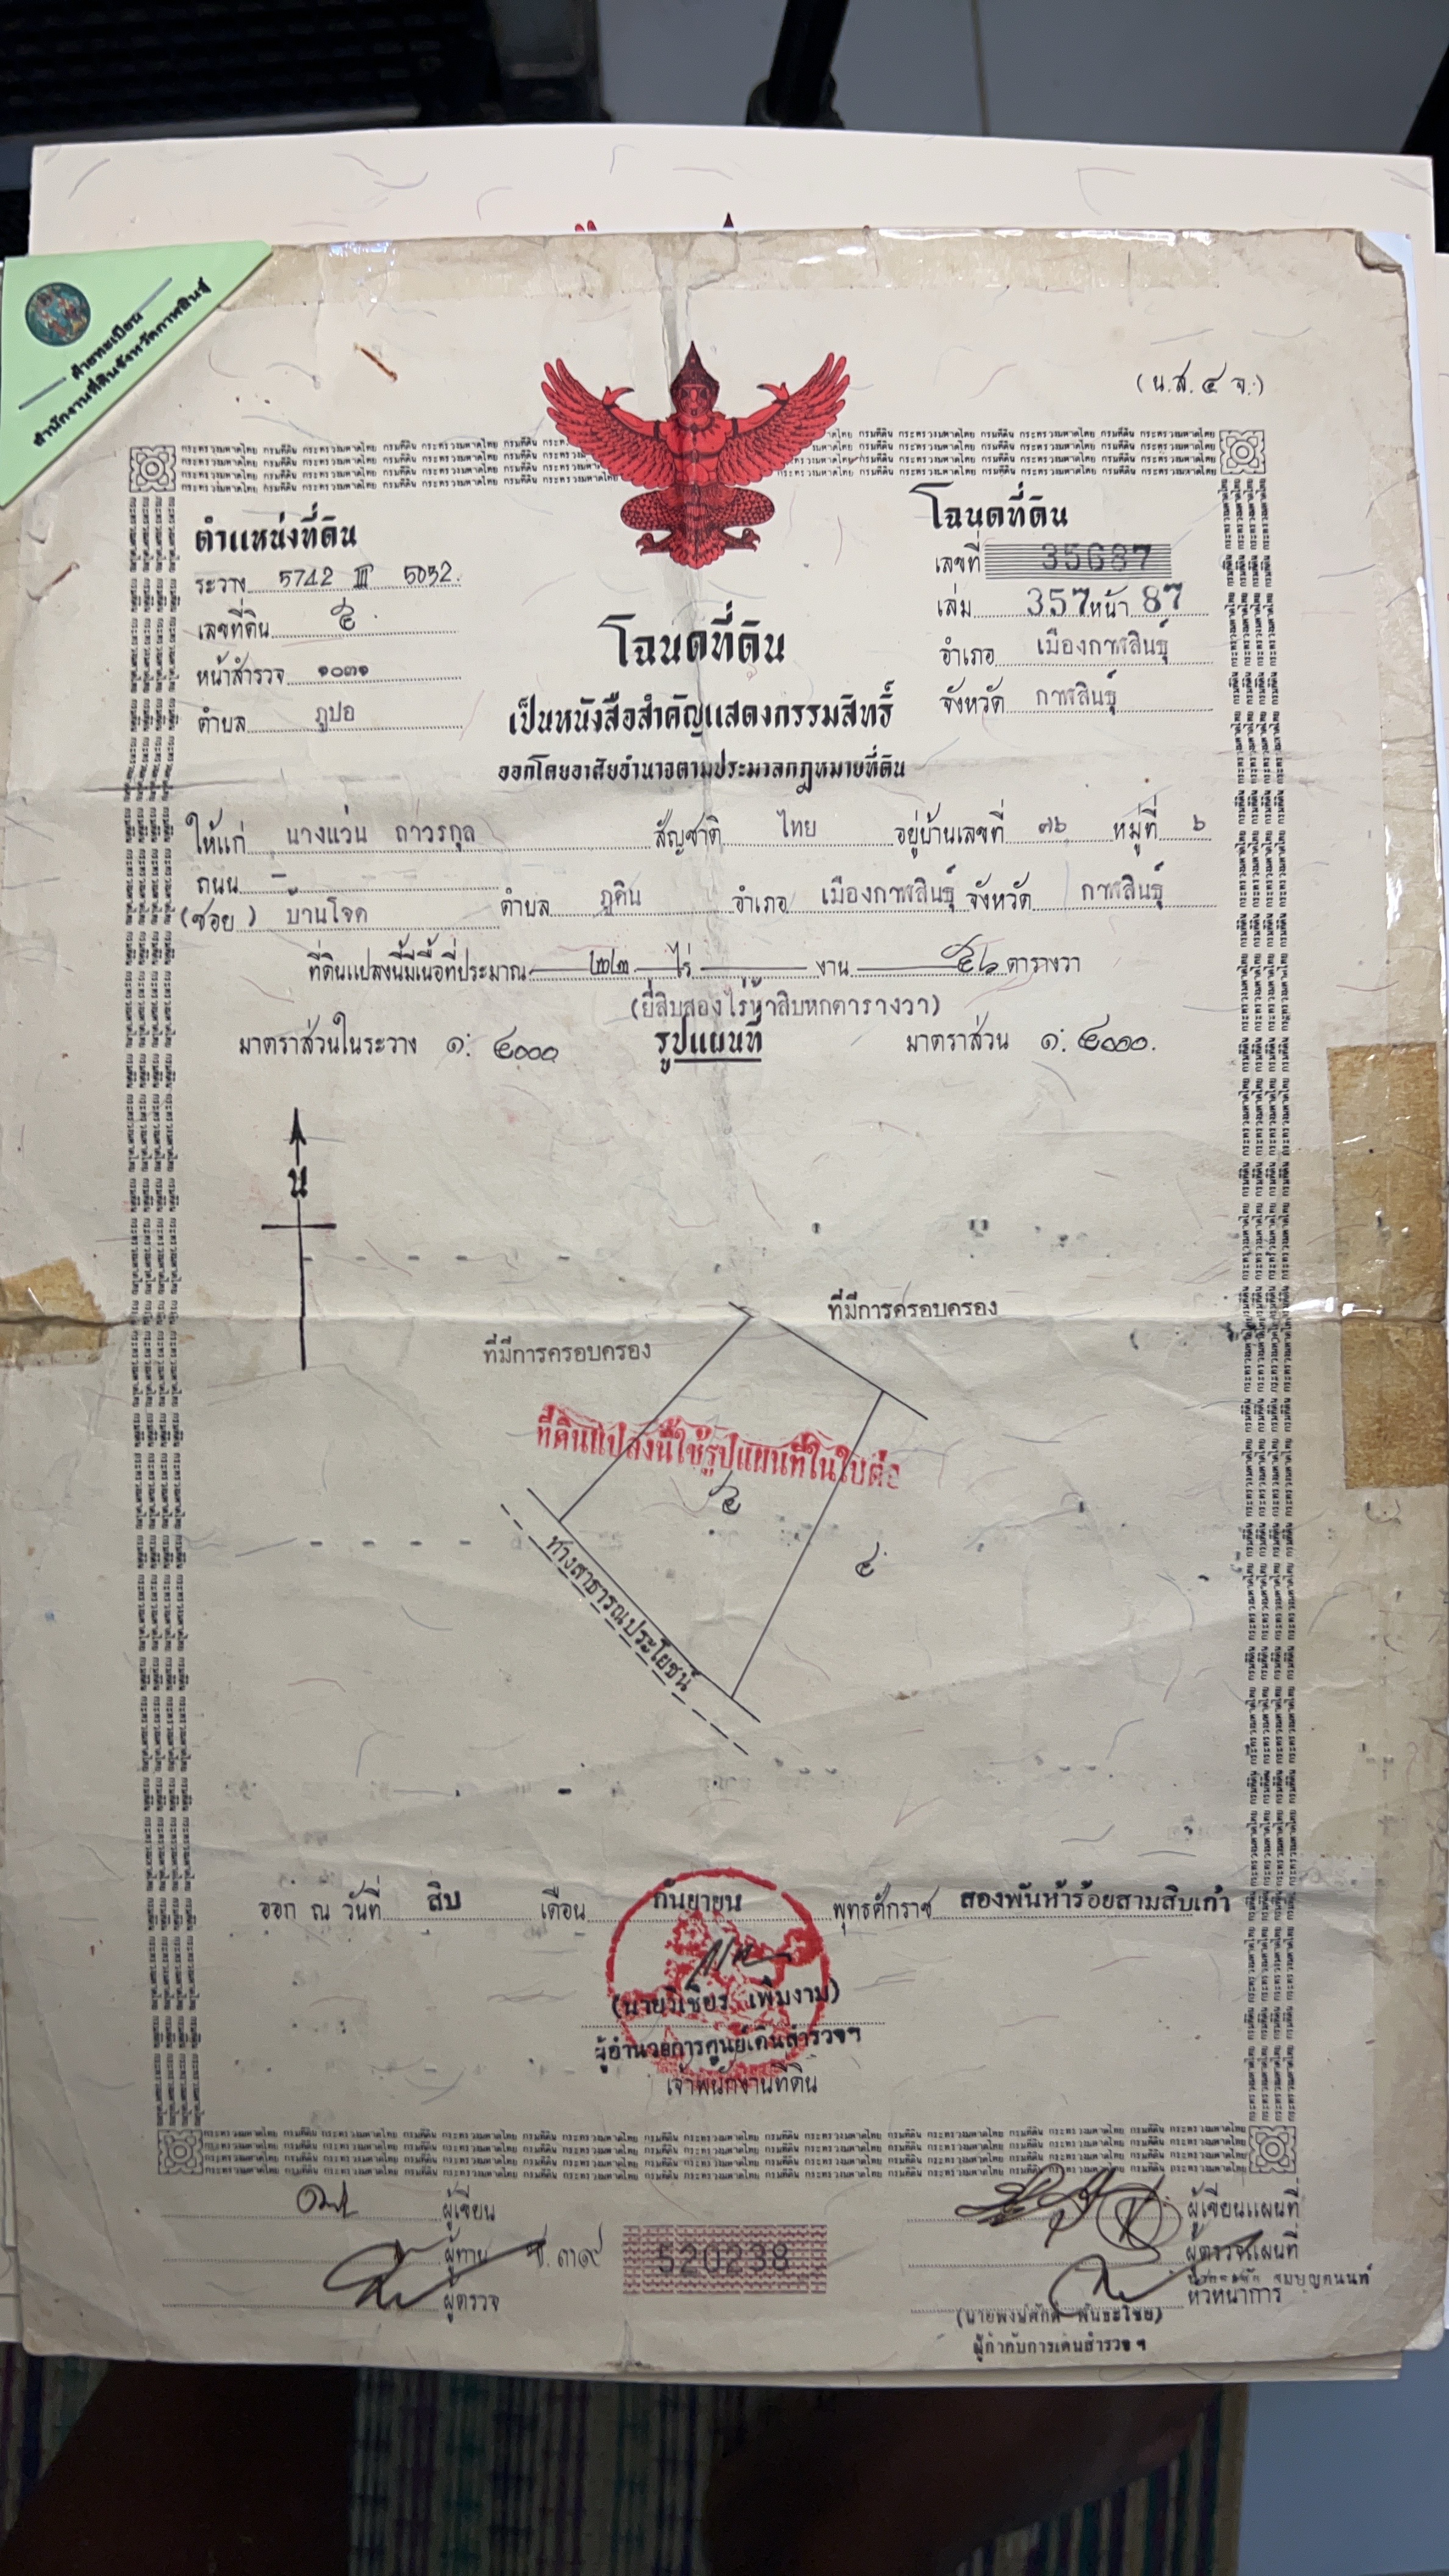 ฝ่ายทะเบียน
สำนักงานที่ดินจังหวัดกาฬสินธุ์
(น.ส. ๔ จ.)
ตำแหน่งที่ดิน
ระวาง 5742 III 5032.
เลขที่ดิน ๕
หน้าสำรวจ ๑๐๓๑
ตำบล ภูปอ
โฉนดที่ดิน
เลขที่ 35687
เล่ม 357 หน้า 87
อำเภอ เมืองกาฬสินธุ์
จังหวัด กาฬสินธุ์
โฉนดที่ดิน
เป็นหนังสือสำคัญแสดงกรรมสิทธิ์
ออกโดยอาศัยอำนาจตามประมวลกฎหมายที่ดิน
ให้แก่ นางแว่น ถาวรกุล สัญชาติ ไทย อยู่บ้านเลขที่ ๓๖ หมู่ที่ ๖
ถนน –
(ซอย) บ้านโจด ตำบล ภูดิน อำเภอ เมืองกาฬสินธุ์ จังหวัด กาฬสินธุ์
ที่ดินแปลงนี้มีเนื้อที่ประมาณ ๒๒ ไร่ งาน ๕๖ ตารางวา
(ยี่สิบสองไร่ห้าสิบหกตารางวา)
มาตราส่วนในระวาง ๑: ๔๐๐๐ รูปแผนที่ มาตราส่วน ๑: ๔๐๐๐.
น
ที่มีการครอบครอง
ที่มีการครอบครอง
ที่ดินแปลงนี้ใช้รูปแผนที่ในใบต่อ
๕
๔
ทางสาธารณประโยชน์
ออก ณ วันที่ สิบ เดือน กันยายน พุทธศักราช สองพันห้าร้อยสามสิบเก้า
(นายวิเชียร เพิ่มงาม)
ผู้อำนวยการศูนย์เดินสำรวจฯ
เจ้าพนักงานที่ดิน
ผู้เขียน
ผู้ทาน ช. ๓๑๙
ผู้ตรวจ
520238
ผู้เขียนแผนที่
ผู้ตรวจแผนที่
หัวหน้าการ
(นายพงษ์ศักดิ์ พันธะไชย)
ผู้กำกับการเดินสำรวจฯ